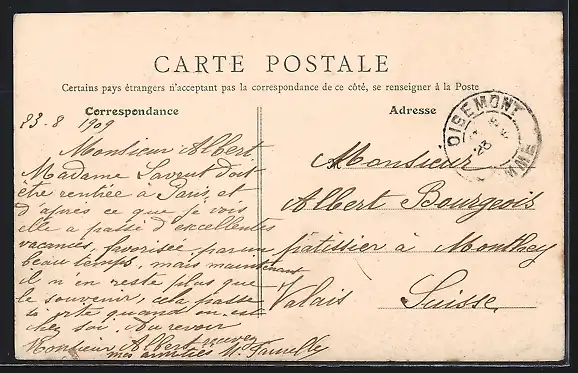 CARTE POSTALE
Certains pays étrangers n'acceptant pas la correspondance de ce côté, se renseigner à la Poste
Correspondance
23-8 1909
Monsieur Albert
Madame doit
être rentrée à Paris, et
d'après ce que je vois
elle a passé d'excellentes
vacances, favorisée par un
beau temps, mais maintenant
il n'en reste plus que
le souvenir, cela passe
si vite quand on est
chez soi. Au revoir
Monsieur Albert recevez
mes amitiés M.
Adresse
OISEMONT
23
SOMME
Monsieur
Albert Bourgeois
pâtissier à Monthey
Valais Suisse